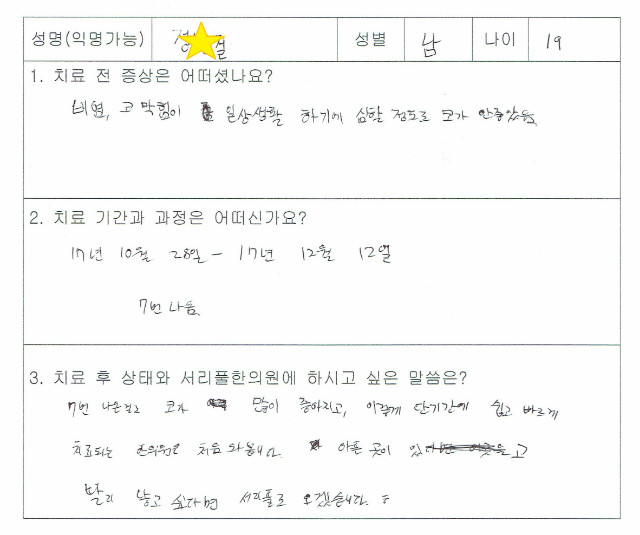 성명(익명가능) 정 걸 성별 남 나이 19
1. 치료 전 증상은 어떠셨나요?
비염, 코 막힘이 일상생활 하기에 심할 정도로 코가 안좋았음
2. 치료 기간과 과정은 어떠신가요?
17년 10월 28일 - 17년 12월 12일
7번 나옴
3. 치료 후 상태와 서리풀한의원에 하시고 싶은 말씀은?
7번 나온걸로 코가 많이 좋아지고, 이렇게 단기간에 쉽고 빠르게
치료되는 한의원은 처음 와봅니다. 아픈 곳이 있고
빨리 낳고 싶다면 서리풀로 오겠습니다.